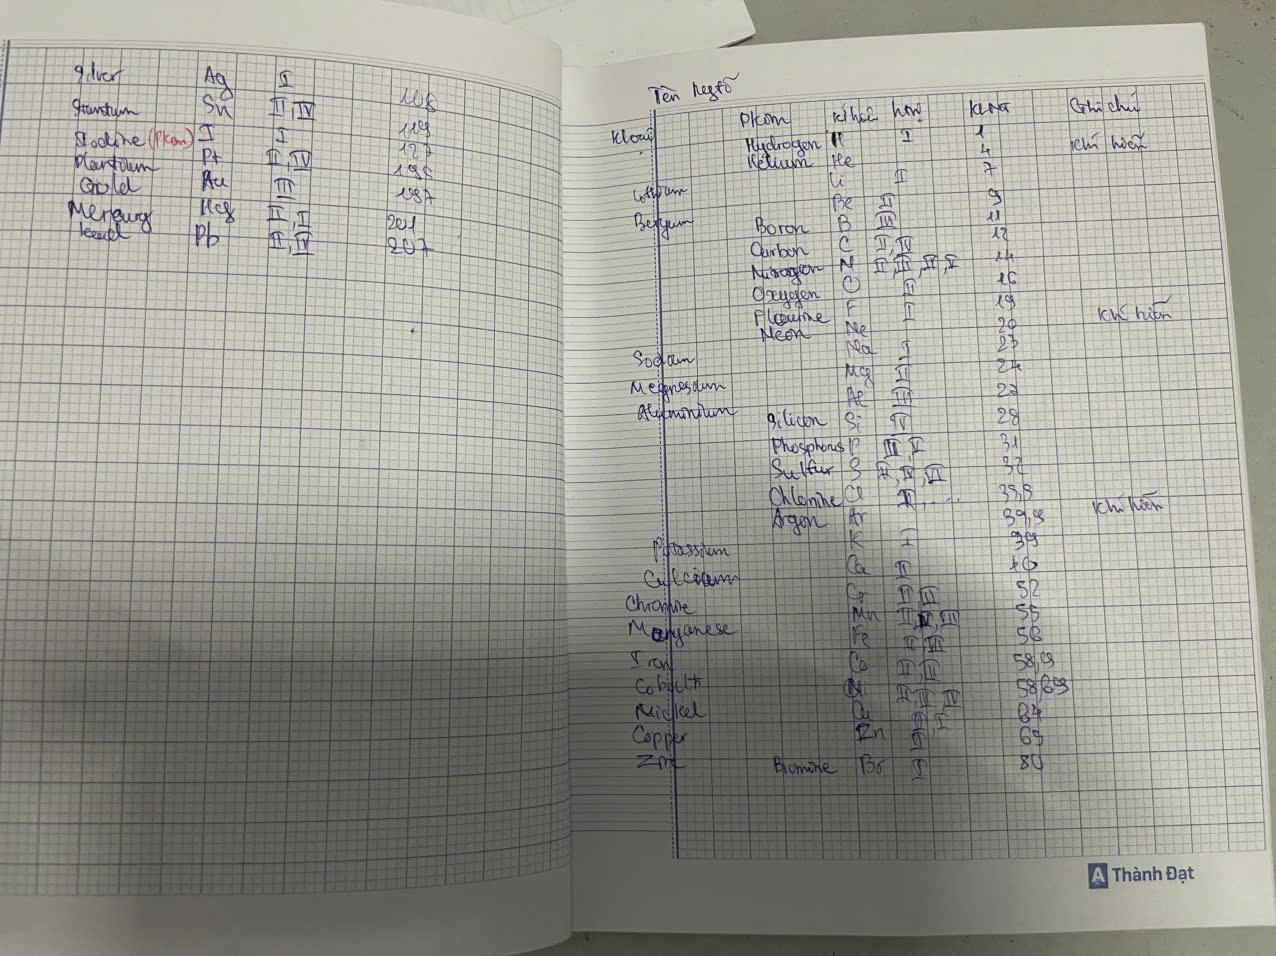 Silver Ag I 108
Sn II, IV 119
Iodine (Pkim) I I 127
Plantium Pt II, IV 195
Gold Au III 197
Mercury Hg II, I 201
Lead Pb II, IV 207
Tên ngtố
Kloại Pkim Kí hiệu htrị KLNT Ghi chú
Hydrogen H I 1
Helium He 4 Khí hiếm
Lithium Li I 7
Beryum Be II 9
Boron B III 11
Carbon C II, IV 12
Nitrogen N 14
Oxygen O II 16
Flourine F I 19
Neon Ne 20 Khí hiếm
Sodium Na I 23
Magnesium Mg II 24
Aluminium Al III 27
Silicon Si IV 28
Phosphorus P III, V 31
Sulfur S II, IV, VI 32
Chlorine Cl I, .... 35,5
Argon Ar 39,9 Khí hiếm
Potassium K I 39
Calcium Ca II 40
Cr II, III 52
Manganese Mn 55
Iron Fe II, III 56
Cobalt Co II, III 58,9
Nickel Ni 58,69
Copper Cu II, I 64
Zinc Zn II 65
Bromine Br I 80
A Thành Đạt